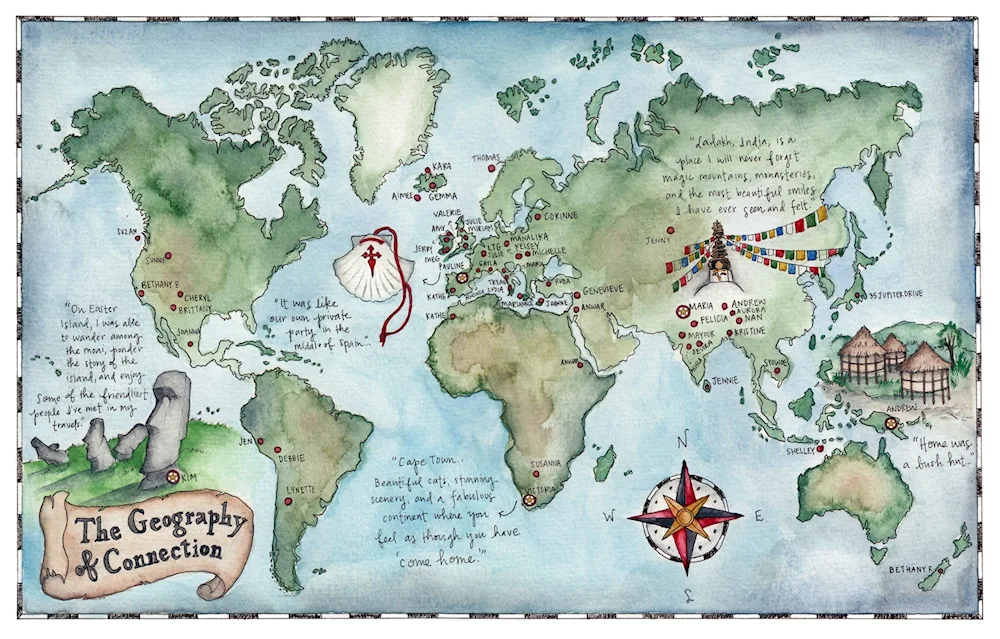 KARA
THOMAS
AIMEE
GEMMA
"Ladakh, India, is a
place I will never forget
magic mountains, monasteries,
and the most beautiful smiles
I have ever seen and felt."
VALERIE
AMY
JULIE
MIRIAM
CORINNE
SUZAN
SUNNY
JERRY
MEG
LTG
JULIE
MANALIKA
KELSEY
MICHELLE
JENNY
PAULINE
GAYLA
MARIA
BETHANY B
CHERYL
BRITTANY
KATHE
LYDIA
MARIANNE
JOANNE
RUBA
GENEVIEVE
35 JUPITER DRIVE
KATHE
ANWAR
MARIA
ANDREW
AURORA
NAN
FELICIA
JOANN
MAYOOR
KRISTINE
"On Easter
Island, I was able
to wander among
the moai, ponder
the story of the
island, and enjoy
some of the friendliest
people I've met in my
travels."
"It was like
our own private
party in the
middle of Spain..."
JENNIE
ANDREW
JEN
DEBBIE
SHELLEY
"Home was
a bush hut."
KIM
LYNETTE
SUSANNA
VICTORIA
"Cape Town...
Beautiful cats, stunning
scenery, and a fabulous
continent where you
feel as though you have
'come home.'"
N
W
E
S
The Geography
of Connection
BETHANY R